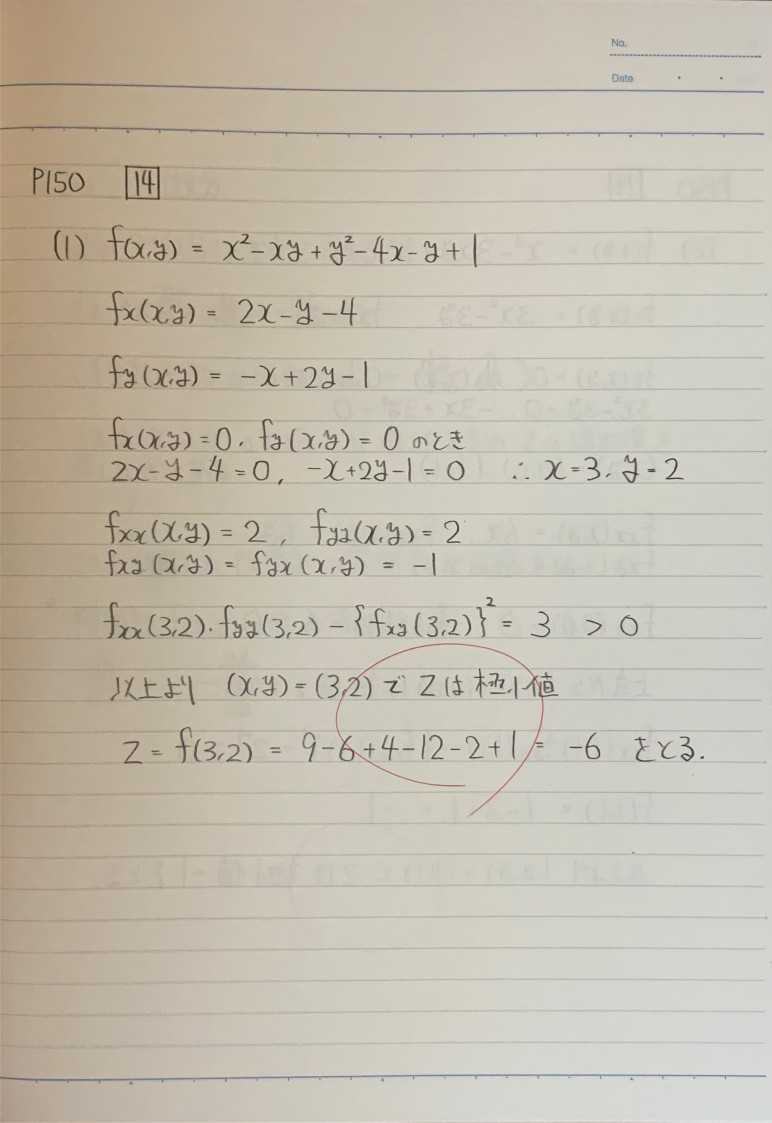 No.
Date
P150 14
(1) f(x,y) = x²-xy+y²-4x-y+1
fx(x,y) = 2x-y-4
fy(x,y) = -x+2y-1
fx(x,y)=0, fy(x,y)=0 のとき
2x-y-4=0, -x+2y-1=0 ∴ x=3, y=2
fxx(x,y)=2, fyy(x,y)=2
fxy(x,y) = fyx(x,y) = -1
fxx(3,2)·fyy(3,2)-{fxy(3,2)}²= 3 > 0
以上より (x,y)=(3,2)で Zは極小値
Z = f(3,2) = 9-6+4-12-2+1 = -6 をとる.